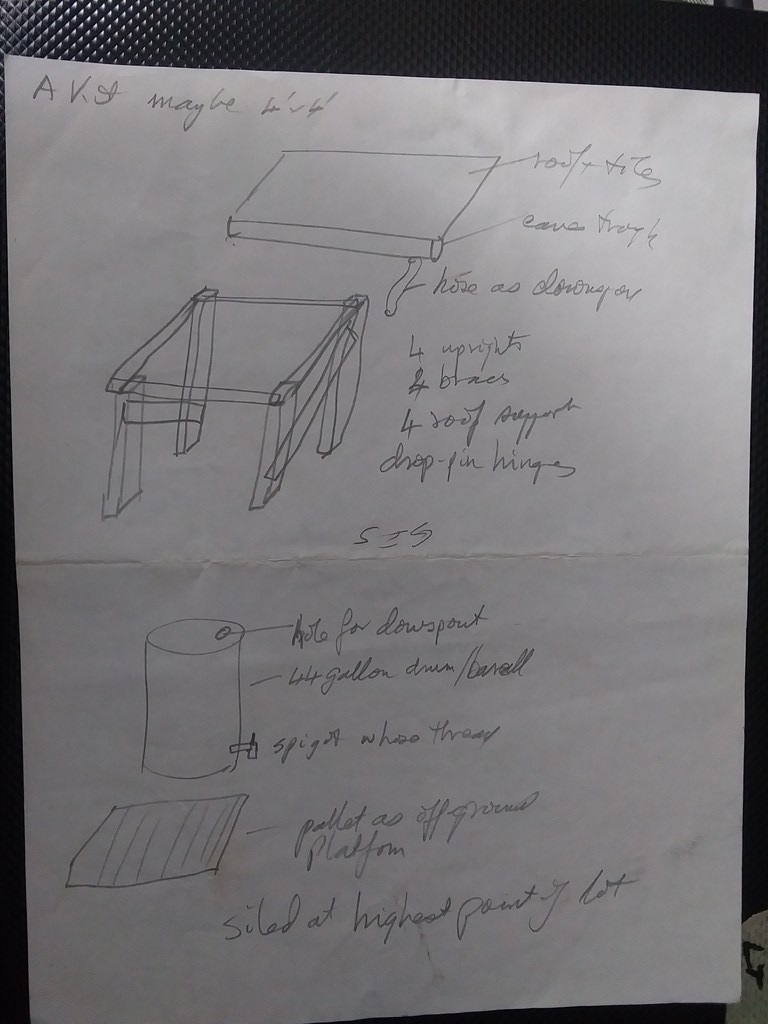 A Kit maybe 4'x4'
roof + tiles
eaves trough
hose as downspout
4 uprights
braces
4 roof support
drop-pin hinges
hole for downspout
44 gallon drum/barell
spigot w hose thread
pallet as off ground
platform
sited at highest point of lot